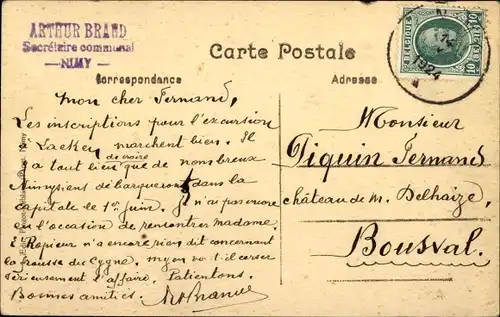 ARTHUR BRAND
Secrétaire communal
— NIMY —
Carte Postale
Correspondance
Adresse
BELGIQUE
10
10
1924
mon cher Fernand,
Les inscriptions pour l'excursion
à Laeken marchent bien. Il
de croire
a tout lieu que de nombreux
Nimysiens débarqueront dans la
capitale le 1er juin. Je n'ai pas encore
eu l'occasion de rencontrer madame.
E. Ropieur n'a encore rien dit concernant
la fausse du Cygne.
sérieusement l'affaire. Patientons.
Bonnes amitiés.
Monsieur
Piquin Fernand
château de M. Delhaize,
Bousval.